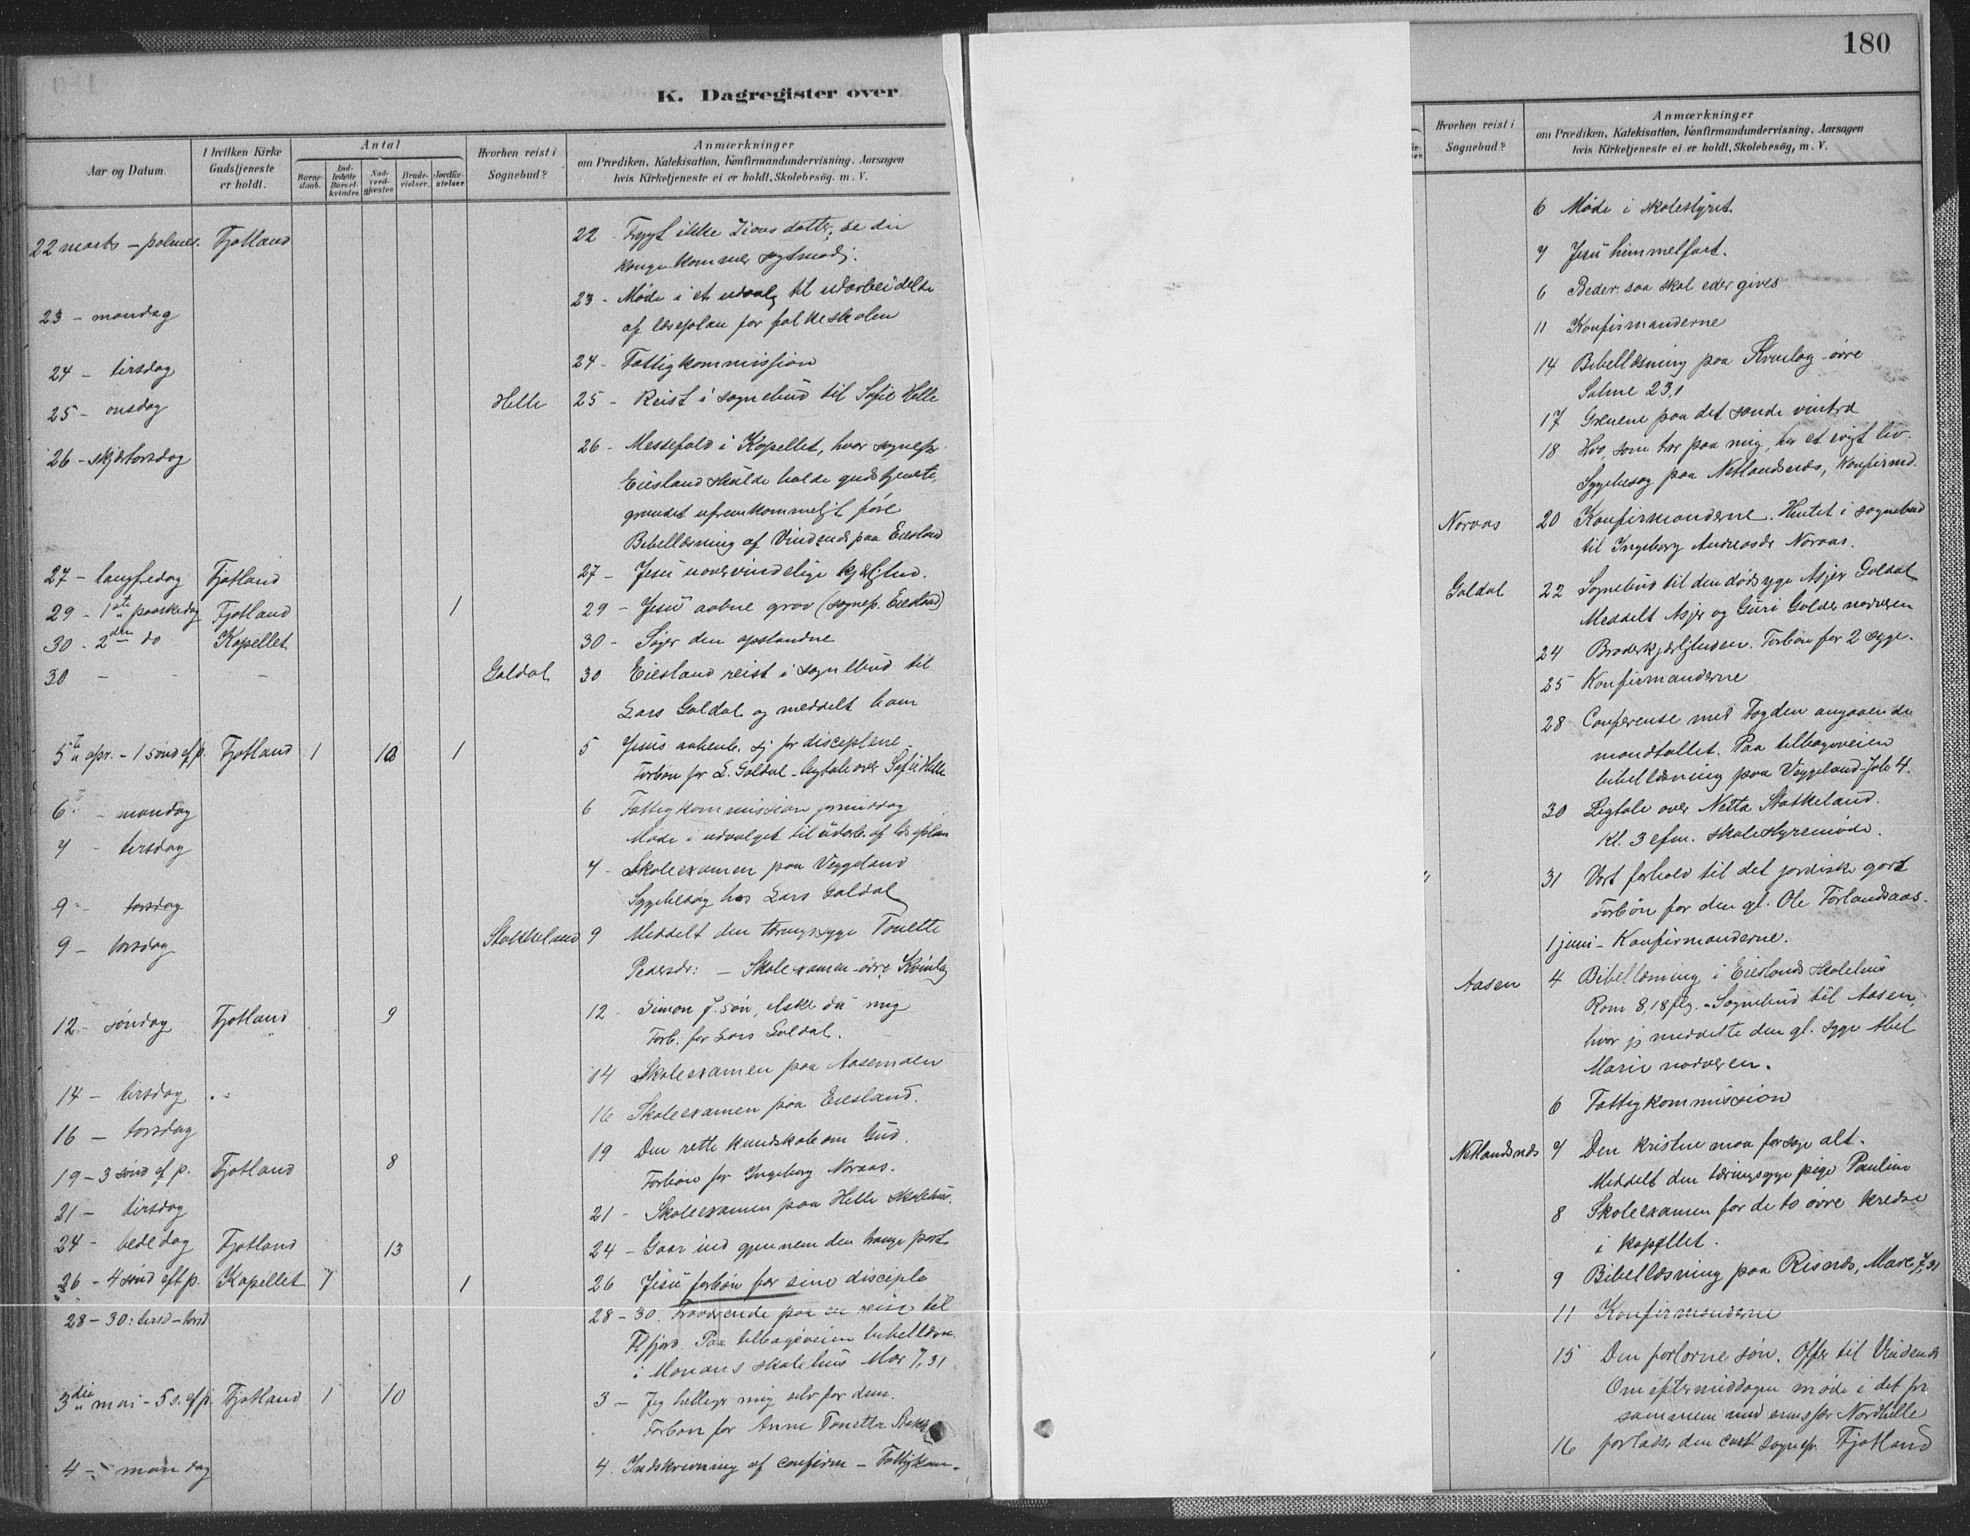 180
K. Dagregister over
Aar og Datum.
I hvilken Kirke Gudstjeneste er holdt.
Antal
Barnedaab.
Indledede Barselkvinder.
Nadverdgjæster
Brudevielser.
Jordfæstelser
Hvorhen reist i Sognebud?
Anmærkninger
om Prædiken, Katekisation, Konfirmandundervisning, Aarsagen
hvis Kirketjeneste ei er holdt, Skolebesög, m. V.
22 marts – palmes. Fjotland 22 - Frygt ikke Zions datter; se din
konge kommer sagtmodig.
23 – mandag 23 - Møde i et udvalg til udarbeidelse
af læseplan for folkeskolen
24 – tirsdag 24 - Fattigkommission
25 – onsdag Helle 25 – Reist i sognebud til Sofie Helle
26 – skjærtorsdag 26 – Messefald i Kapellet, hvor sognepr.
Eiesland skulde holde gudstjeneste,
grundet ufremkommeligt føre
Bibellæsning af Vindenes paa Eiesland
27 – langfredag Fjotland 27 – Jesu uovervindelige kjærlighed.
29 – 1ste paaskedag Fjotland 1 29 – Jesu aabne grav (sognep. Eiesland)
30 – 2den do Kapellet 30 – Søger den opstandne
30 - - - Galdal 30 Eiesland reist i sognebud til
Lars Galdal og meddelt ham
5te apr. – 1 sønd ef p. Fjotland 1 10 1 5 Jesus aabenb. sig for disciplene
Forbøn for L. Galdal – Ligtale over Sofie Helle
6te – mandag 6 Fattigkommission formiddag
Møde i udvalget til udarb. af læseplan
7 – tirsdag 7 - Skoleexamen paa Veggeland
Sygebesøg hos Lars Galdal
9 - torsdag
9 – torsdag Stakkeland 9 Meddelt den tæringssyge Tonette
Pedersdr: – Skoleexamen øvre Kvinlog
12 – søndag Fjotland 9 12 - Simon J. søn, elsker du mig
Forb. for Lars Galdal.
14 – tirsdag 14 Skoleexamen paa Aasemoen
16 – torsdag 16 Skoleexamen paa Eiesland.
19 – 3 sønd ef p. Fjotland 8 19 Den rette kundskab om Gud.
Forbøn for Ingeborg Noraas.
21 – tirsdag 21 - Skoleexamen paa Helle skolehus.
24 – bededag Fjotland 13 24 – Gaar ind gjennem den trange port
26 – 4 sønd eft p. Kapellet 7 1 26 Jesu forbøn for sine disciple
28 – 30: tirsd – torsd 28 – 30. Fraværende paa en reise til
Flfjord. Paa tilbageveien bibellæsn.
i Monans skolehus Mar 7,31
3die mai – 5 s. ef p. Fjotland 1 10 3 – Jeg helliger mig selv for dem.
Forbøn for Anne Tonetta
4 – mandag 4. Indskrivning af confirm – Fattigkom.
Hvorhen reist i Sognebud?
Anmærkninger
om Prædiken, Katekisation, Konfirmandundervisning, Aarsagen
hvis Kirketjeneste ei er holdt, Skolebesög, m. V.
6 Møde i skolestyret
7 Jesu himmelfart.
6 Beder, saa skal eder gives
11 Konfirmanderne
14 Bibellæsning paa Kvinlog øvre
Salme 23,1
17 Grenene paa det sande vintræ
18 Hvo, som tror paa mig, har et evigt liv.
Sygebesøg paa Netlandsnæs, Konfirmd.
Noraas 20 Konfirmanderne. Hentet i sognebud
til Ingeborg Andreasdr Noraas.
Galdal 22 Sognebud til den dødssyge Asjer Galdal
Meddelt Asjer og Guri Galdal nadveren
24 Broderkjærligheden. Forbøn for 2 syge.
25 Konfirmanderne
28 Conference med Fogden angaaende
mandtallet. Paa tilbageveien
bibellæsning paa Veggeland Joh 4.
30 Ligtale over Netta Stakkeland.
Kl. 3 efm. skolestyremøde.
31 Vort forhold til det jordiske gods
Forbøn for den gl. Ole Forlandsaas.
1 juni – Konfirmanderne.
Aasen 4 Bibellæsning i Eieslands skolehus
Rom 8,18 flg. – Sognebud til Aasen,
hvor jeg meddelte den gl. syge Abel
Marie nadveren.
6 Fattigkommission
Netlandsnæs 7 Den kristne maa forsage alt.
Meddelt den tæringssyge pige Pauline
8 Skoleexamen for de to øvre kredse
i kapellet.
9 Bibellæsning paa Risnæs, Marc 7,31
11 Konfirmanderne
15 Den forlorne søn. Offer til Vindenes
Om eftermiddagen møde i det fri
sammen med emissær Nordhelle
16 forlader den const sognepr. Fjotland